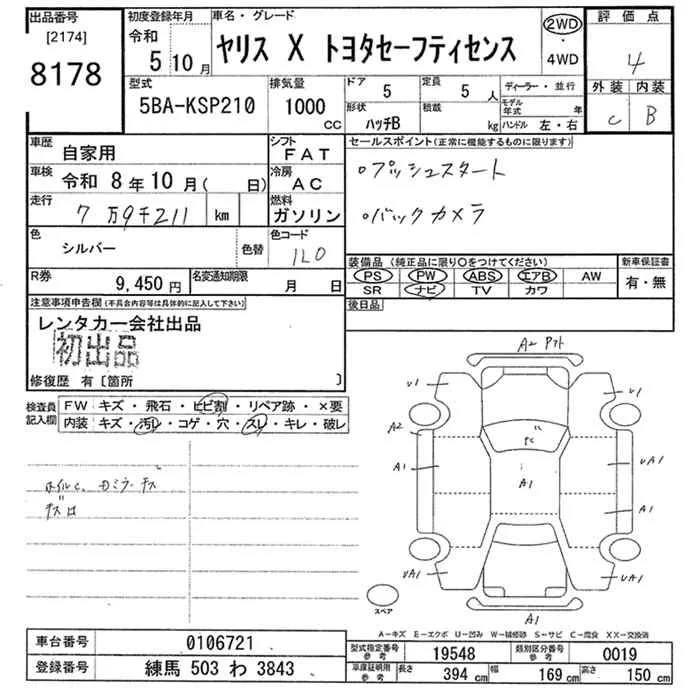 出品番号
[2174]
8178
初度登録年月
令和
5 10 月
車名・グレード
ヤリス X トヨタセーフティセンス
2WD
・
4WD
評価点
4
外装 内装
C B
型式
5BA-KSP210
排気量
1000
CC
ドア
5
定員
5 人
形状
ハッチB
積載
kg
ディーラー・並行
モデル年式 年
ハンドル 左・右
車歴
自家用
シフト
FAT
車検
令和 8年10月( 日)
冷房
AC
走行
7万9千211 km
燃料
ガソリン
色
シルバー
色替
色コード
1L0
R券
9,450 円
名変通知期限
月 日
セールスポイント(正常に機能するものに限ります)
○プッシュスタート
○バックカメラ
装備品(純正品に限り○をつけてください)
PS PW ABS エアB AW
SR ナビ TV カワ
新車保証書
有・無
後日品
注意事項申告欄(不具合内容等は具体的に記入して下さい)
レンタカー会社出品
初出品
修復歴 有〔箇所 〕
検査員記入欄
FW キズ・飛石・ヒビ割・リペア跡・×要
内装 キズ・汚レ・コゲ・穴・スレ・キレ・破レ
A2
U1
U1
A2
A1
A1
UA1
A1
UA1
UA1
A1
スペア
A-キズ E-エクボ U-凹み W-補修跡 S-サビ C-腐食 XX-交換済
車台番号
0106721
登録番号
練馬 503 わ 3843
型式指定番号
参考
19548
類別区分番号
参考
0019
車庫証明用
参考
長さ
394 cm
幅
169 cm
高さ
150 cm